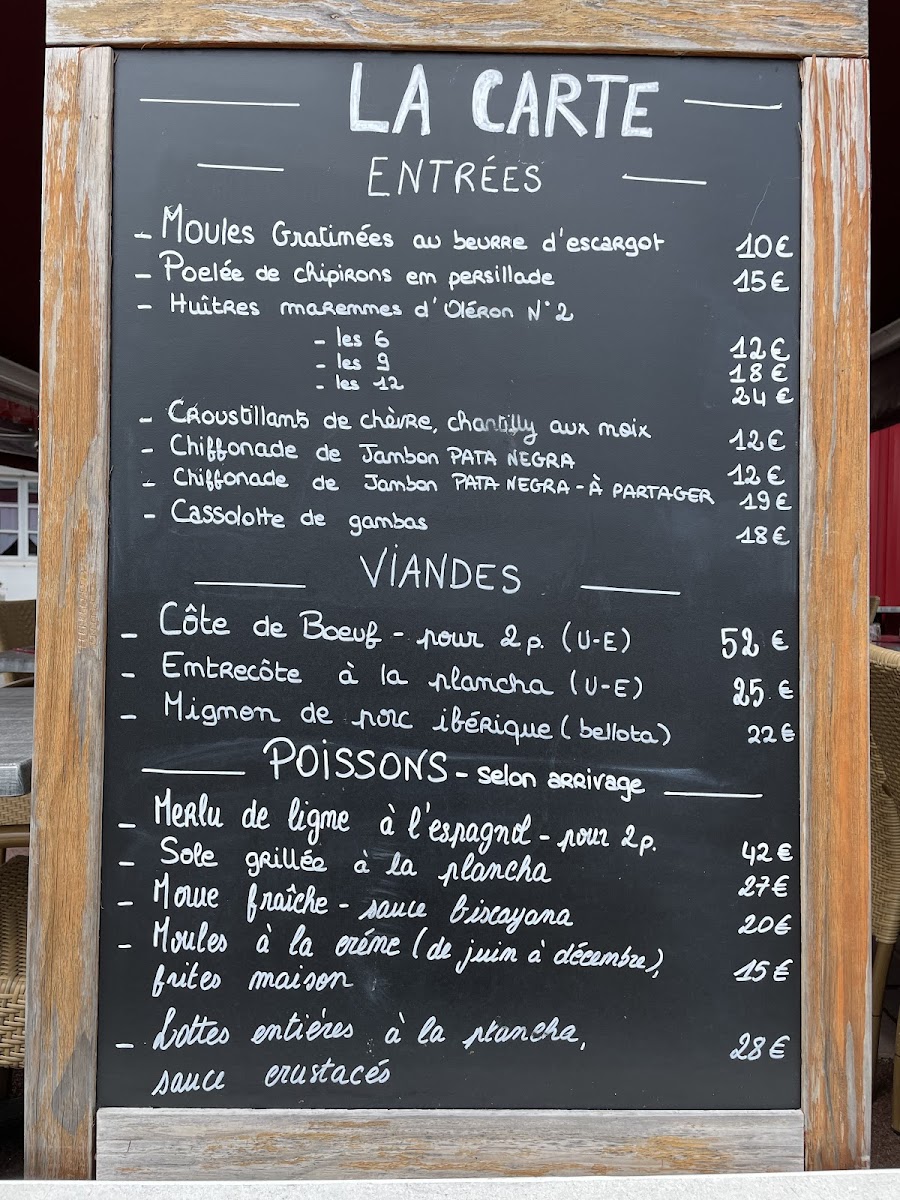 LA CARTE
ENTRÉES
- Moules Gratinées au beurre d'escargot 10€
- Poelée de chipirons en persillade 15€
- Huîtres maremmes d'Oléron N°2
- les 6 12€
- les 9 18€
- les 12 24€
- Croustillants de chèvre, chantilly aux noix 12€
- Chiffonade de Jambon PATA NEGRA 12€
- Chiffonade de Jambon PATA NEGRA - À PARTAGER 19€
- Cassolotte de gambas 18€
VIANDES
- Côte de Boeuf - pour 2p. (U-E) 52€
- Entrecôte à la plancha (U-E) 25.€
- Mignon de porc ibérique (bellota) 22€
POISSONS - selon arrivage
- Merlu de ligne à l'espagnol - pour 2p. 42€
- Sole grillée à la plancha 27€
- Morue fraîche - sauce biscayana 20€
- Moules à la créme (de juin à décembre), 15€
frites maison
- Lottes entiéres à la plancha, 28€
sauce crustacés